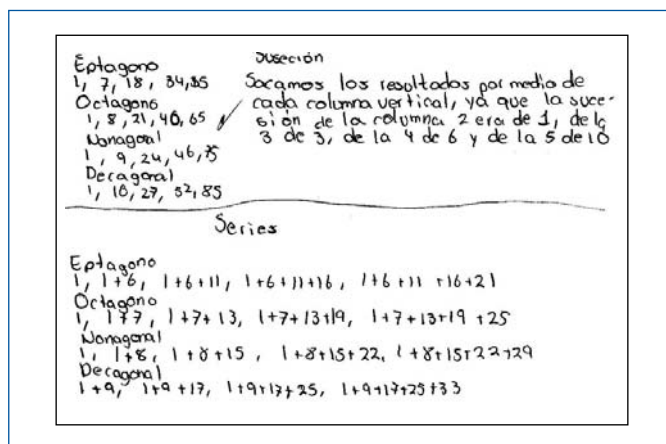 Eptagono
1, 7, 18, 34,55
Octagono
1, 8, 21, 40, 65
Nonagonal
1, 9, 24, 46, 75
Decagonal
1, 10, 27, 52, 85
Suseción
Sacamos los resultados por medio de
cada columna vertical, ya que la suce-
sión de la columna 2 era de 1, de la
3 de 3, de la 4 de 6 y de la 5 de 10
Series
Eptagono
1, 1+6, 1+6+11, 1+6+11+16, 1+6+11+16+21
Octagono
1, 1+7, 1+7+13, 1+7+13+19, 1+7+13+19+25
Nonagonal
1, 1+8, 1+8+15, 1+8+15+22, 1+8+15+22+29
Decagonal
1+9, 1+9+17, 1+9+17+25, 1+9+17+25+33